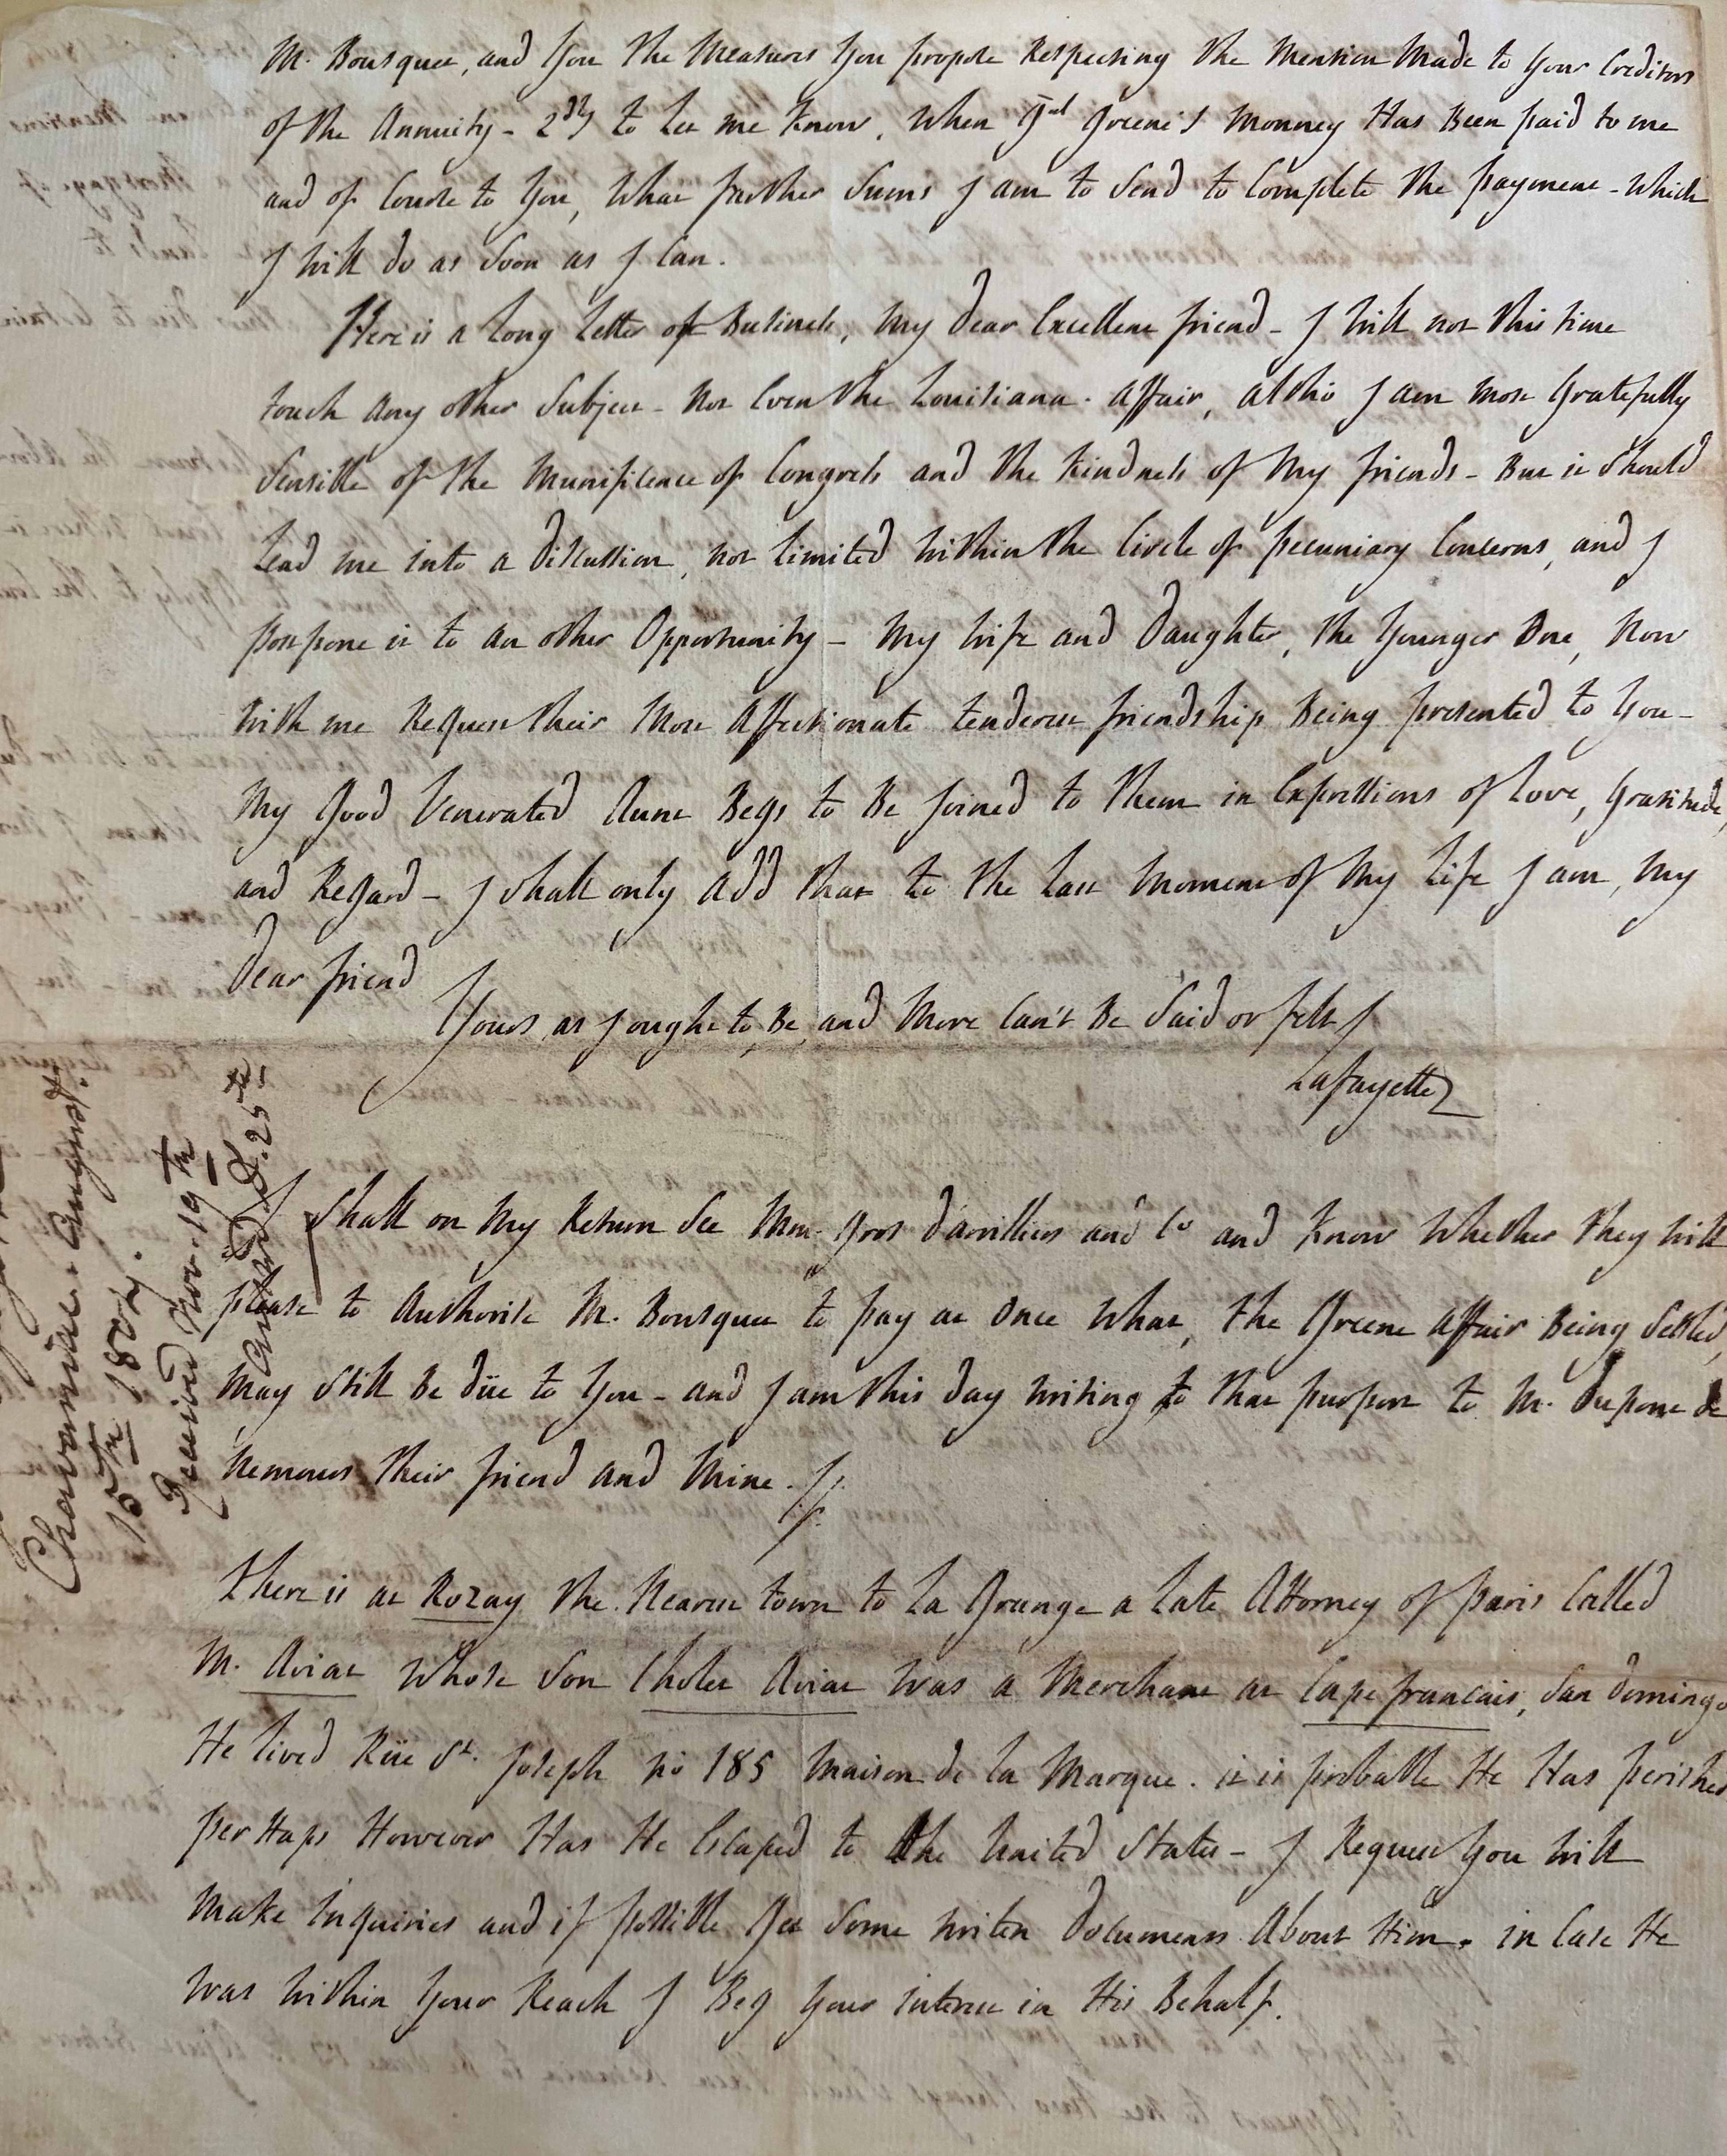 M. Bousquet, and You the Measures You propose Respecting the Mention Made to Your Creditors
of the Annuity - 2dly to let me know, When Gnl Greene's Monney Has Been paid to me
and of Course to You, What further Sums I am to Send to Complete the payment - which
I will do as Soon as I Can.
Here is a Long Letter of Business, My dear Excellent friend - I will not this time
touch Any other Subject - Not Even the Louisiana Affair, altho I am most Gratefully
Sensible of the Munificence of Congress and the Kindness of My friends - But it Should
Lead me into a discussion, not Limited within the Circle of pecuniary Concerns, and I
postpone it to an other Opportunity - My wife and daughter, the Younger One, Now
with me Request their Most Affectionate tenderest friendship Being presented to You -
My Good Venerated Aunt Begs to Be joined to them in Expressions of Love, Gratitude,
and Regard - I shall only Add that to the Last Moment of My Life I am, My
dear friend
Yours as I ought to Be, and More Can't Be Said or felt
Lafayette
I Shall on My Return See Mm. Gros davilliers and Co and Know Whether they will
please to Authorise M. Bousquet to pay at Once What, the Greene Affair Being Settled,
May Still Be düe to You - and I am this day writing to that purport to M. dupont de
Nemours their friend and Mine.
there is at Rozay the Nearest town to La Grange a Late Attorney of paris Called
M. Aviat Whose Son Cholet Aviat Was a Merchant at Cape francais, San domingo
He lived Rüe St. joseph no 185 Maison de la Marque. it is probable He Has perished
perHaps However Has He Escaped to the United States - I Request You will
Make Inquiries and if possible Get Some writen documents About Him. in Case He
was within Your Reach I Beg Your interest in His Behalf.
Chavaniac August
15th 1804.
Received Nov. 19th
Answd D. 25th